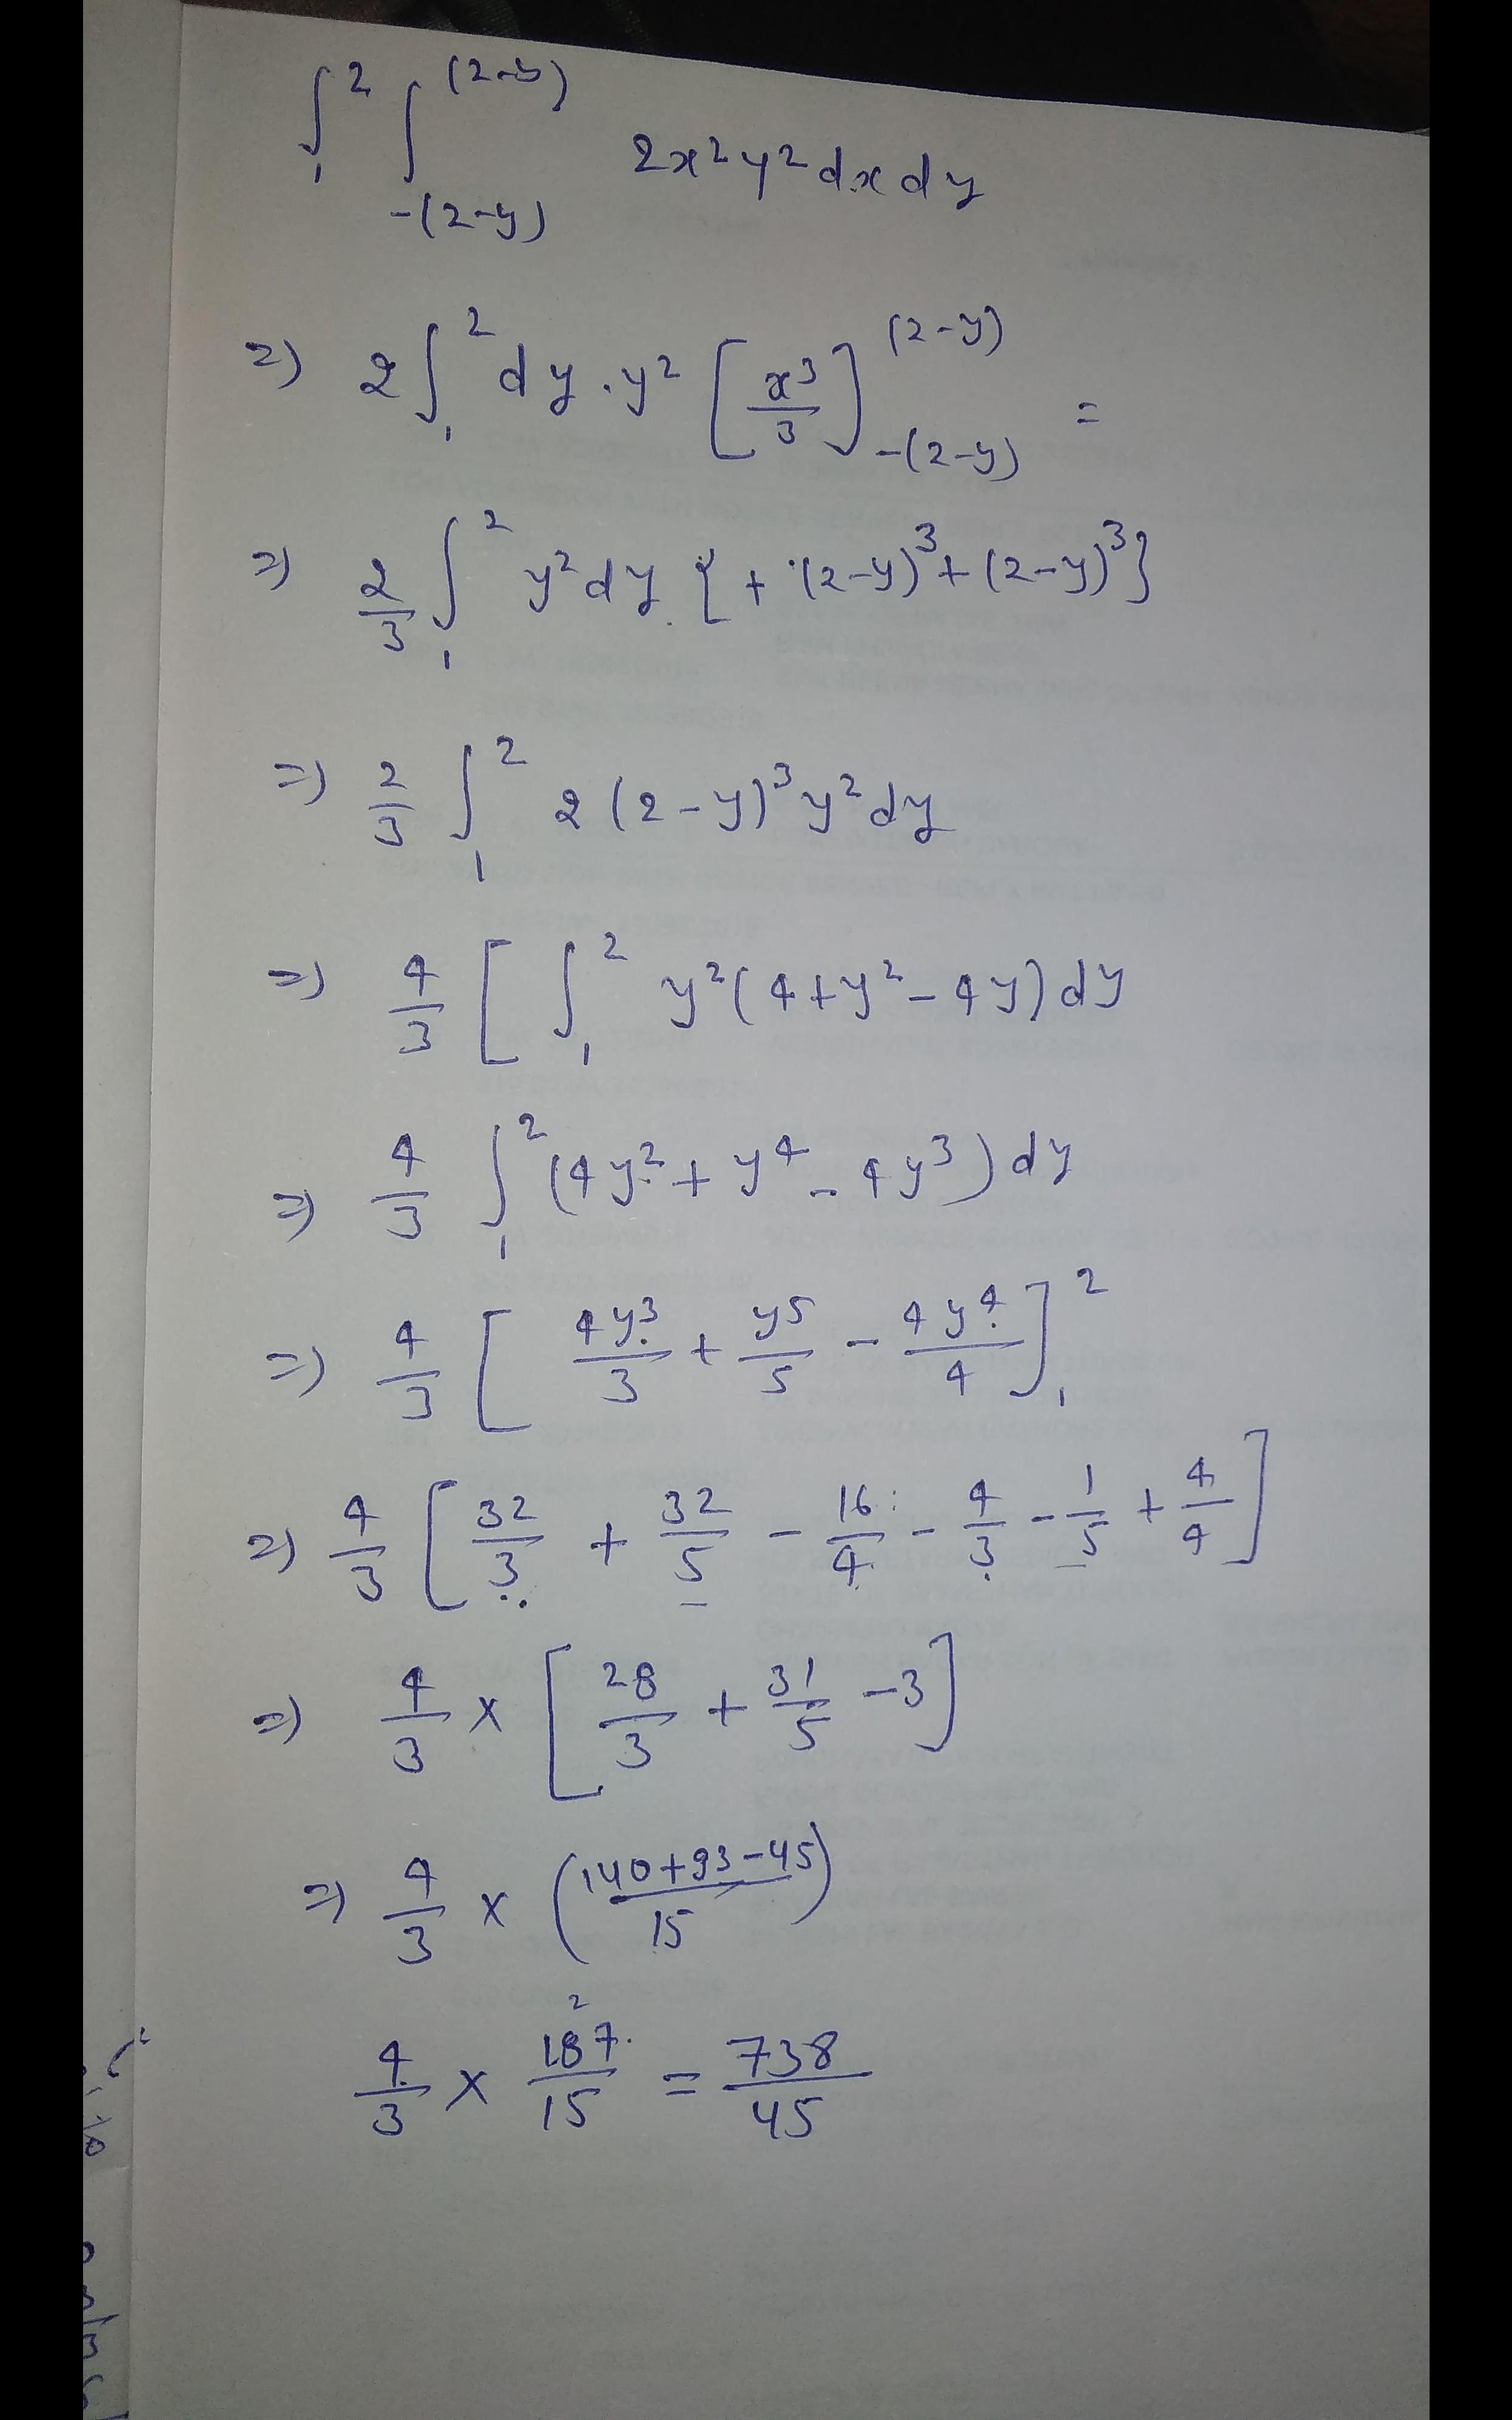 ∫₁² ∫₋₍₂₋y₎^(2-y) 2x²y²dxdy
⇒ 2∫₁² dy . y² [x³/3]₋₍₂₋y₎^(2-y) =
⇒ 2/3 ∫₁² y²dy . {+ (2-y)³ + (2-y)³}
⇒ 2/3 ∫₁² 2(2-y)³y²dy
⇒ 4/3 [ ∫₁² y²(4+y²-4y)dy
⇒ 4/3 ∫₁² (4y²+y⁴-4y³)dy
⇒ 4/3 [ 4y³/3 + y⁵/5 - 4y⁴/4 ]₁²
⇒ 4/3 [ 32/3 + 32/5 - 16/4 - 4/3 - 1/5 + 4/4 ]
⇒ 4/3 × [ 28/3 + 31/5 -3 ]
⇒ 4/3 × (140+93-45/15)
4/3 × 187/15 = 738/45